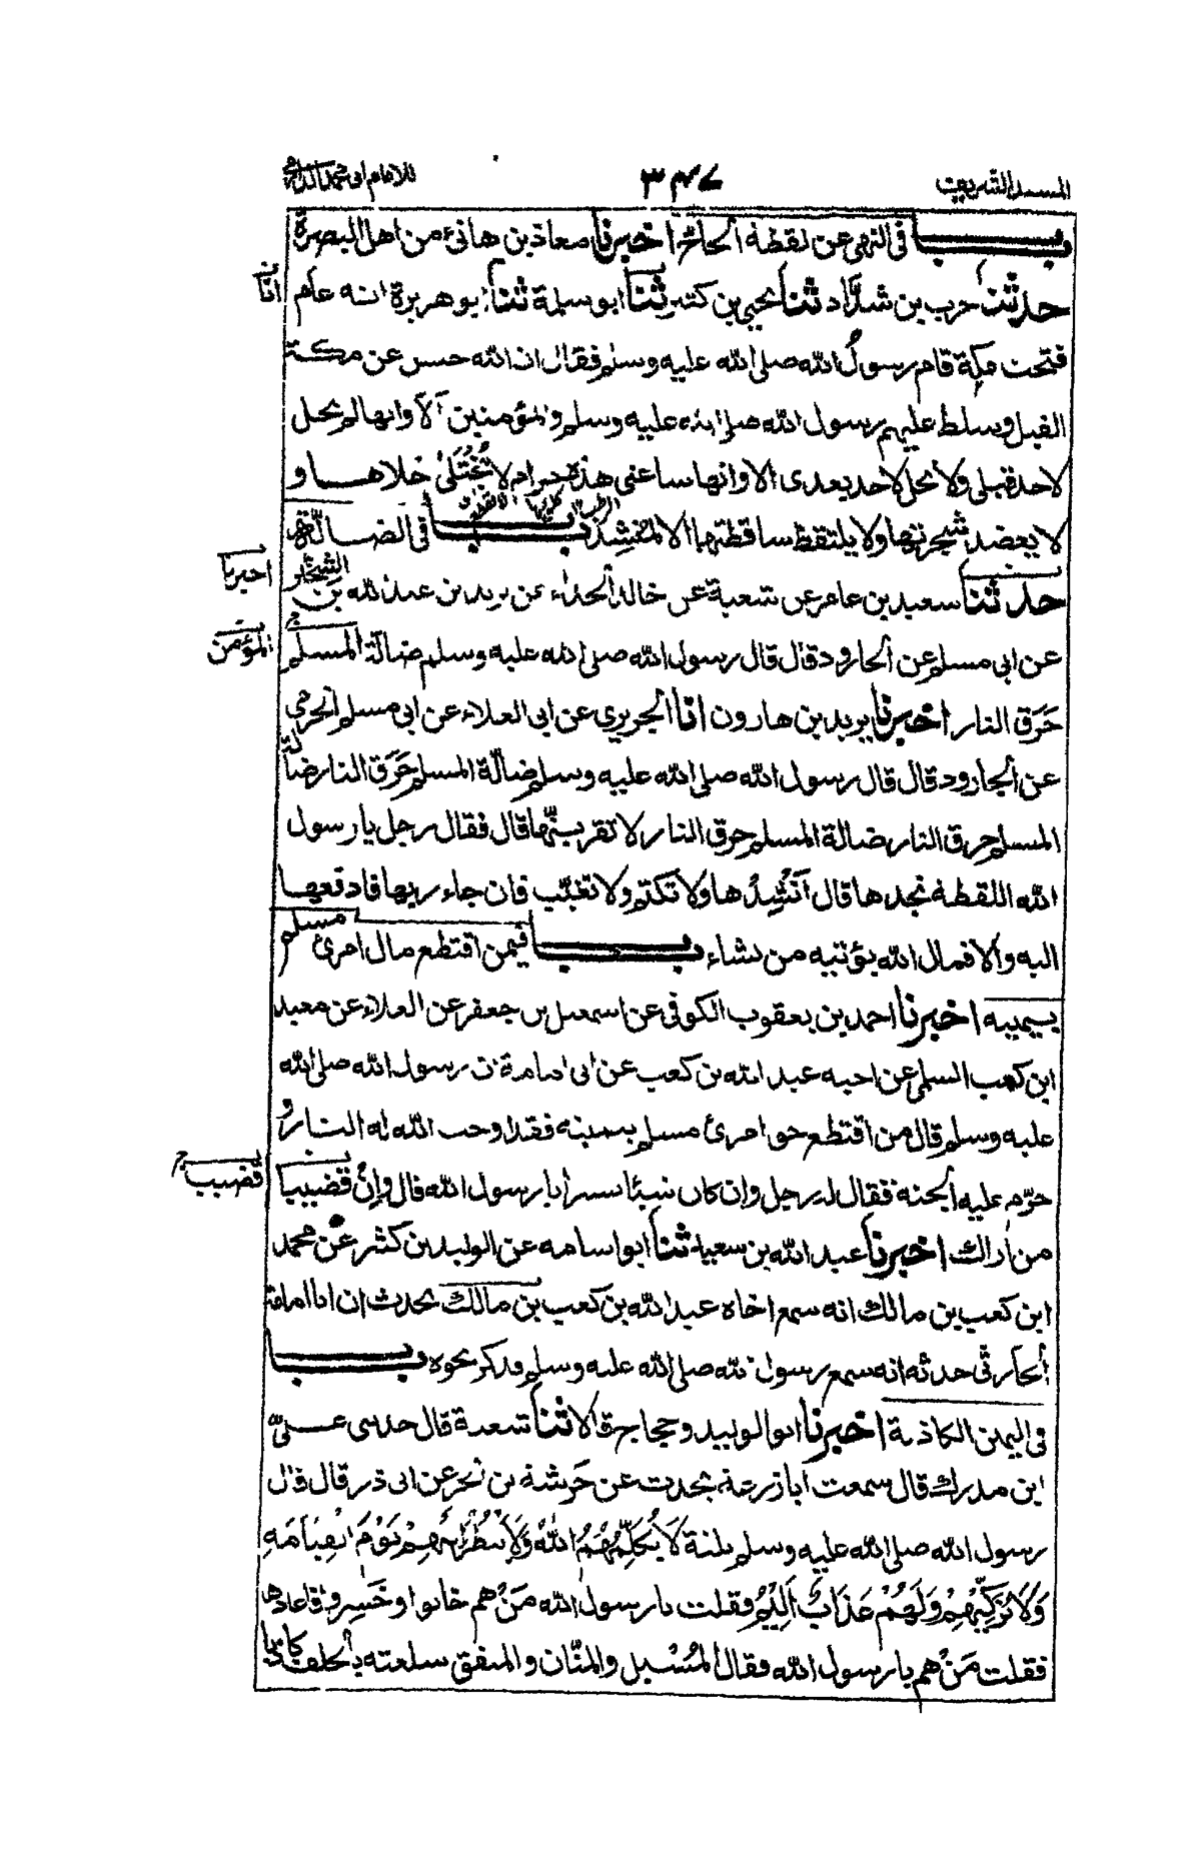 المسند الشريف ٣٤٧ للامام ابى محمد الدارمى
باب فى النهى عن لقطة الحاج اخبرنا معاذ بن هانئ من اهل البصرة
حدثنا حرب بن شداد ثنا يحيى بن كثير ثنا ابو سلمة ثنا ابو هريرة انه عام
فتحت مكة قام رسول الله صلى الله عليه وسلم فقال ان الله حبس عن مكة
الفيل وسلط عليهم رسول الله صلى الله عليه وسلم والمؤمنين ألا وانها لم يحل
لاحد قبلى ولا يحل لاحد بعدى الا وانها ساعتى هذه حرام لا يُخْتَلىٰ خلاها و
لا يعضد شجرتها ولا يلتقط ساقطتها الا لمنشد باب فى الضالة
اخبرنا
حدثنا سعيد بن عامر عن شعبة عن خالد الحذاء عن يزيد بن عبد الله بن الشخير
عن ابى مسلم عن الجارود قال قال رسول الله صلى الله عليه وسلم ضالة المسلم
المؤمن
حَرَق النار اخبرنا يزيد بن هارون انا الجريرى عن ابى العلاء عن ابى مسلم الجرمى
عن الجارود قال قال رسول الله صلى الله عليه وسلم ضالة المسلم حَرَق النار ضالة
المسلم حرق النار ضالة المسلم حرق النار لا تقربنّها قال فقال رجل يا رسول
الله اللقطة نجدها قال أَنْشِدْها ولا تكتم ولا تغيّب فان جاء ربها فادفعها
اليه والا فمال الله يؤتيه من يشاء باب فيمن اقتطع مال امرئ مسلم
بيمينه اخبرنا احمد بن يعقوب الكوفى عن اسمعيل بن جعفر عن العلاء عن معبد
ابن كعب السلمى عن اخيه عبد الله بن كعب عن ابى امامة ان رسول الله صلى الله
عليه وسلم قال من اقتطع حق امرئ مسلم بيمينه فقد اوجب الله له النار و
حرّم عليه الجنة فقال له رجل وان كان شيئا يسيرا يا رسول الله قال وإنْ قضيبا
قضيب
من أراك اخبرنا عبد الله بن سعيد ثنا ابو اسامه عن الوليد بن كثير عن محمد
ابن كعب بن مالك انه سمع اخاه عبد الله بن كعب بن مالك يحدث ان ابا امامة
الحارثى حدثه انه سمع رسول الله صلى الله عليه وسلم فذكر نحوه باب
فى اليمين الكاذبة اخبرنا ابو الوليد وحجاج قالا ثنا شعبة قال حدثنى علىّ
ابن مدرك قال سمعت ابا زرعة يحدث عن خَرشة بن الحر عن ابى ذر قال قال
رسول الله صلى الله عليه وسلم ثلثة لَا يُكَلِّمُهُمُ اللهُ وَلَا يَنْظُرُ إِلَيْهِمْ يَوْمَ الْقِيَامَةِ
وَلَا يُزَكِّيْهِمْ وَلَهُمْ عَذَابٌ اَلِيْمٌ فقلت يا رسول الله مَنْ هم خابوا وخَسِروا فاعادها
فقلت مَنْ هم يا رسول الله فقال المُسْبِل والمنّان والمنفق سلعته بالحلف كاذبا